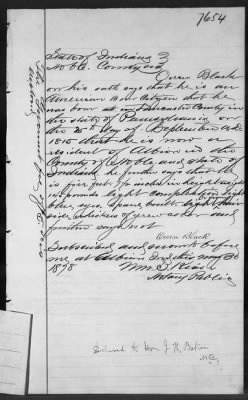 7654
State of Indiana }
Noble County SS
Owen Black
on his oath says that he is an
American Born Citizen that he
was born at in Lancaster County in
the State of Pennsylvania on
the 25th day of September AD
1815 that he is now a
resident of Albion in the
County of Noble and State of
Indiana he further says that he
is five feet 7½ inches in height weighs
pounds light complexion
blue eyes, spare built
side whiskers of grey color and
further says not
Owen Black
Subscribed and sworn to before
me at Albion Ind this May 30
1878
Notary Public
Hon J. H.